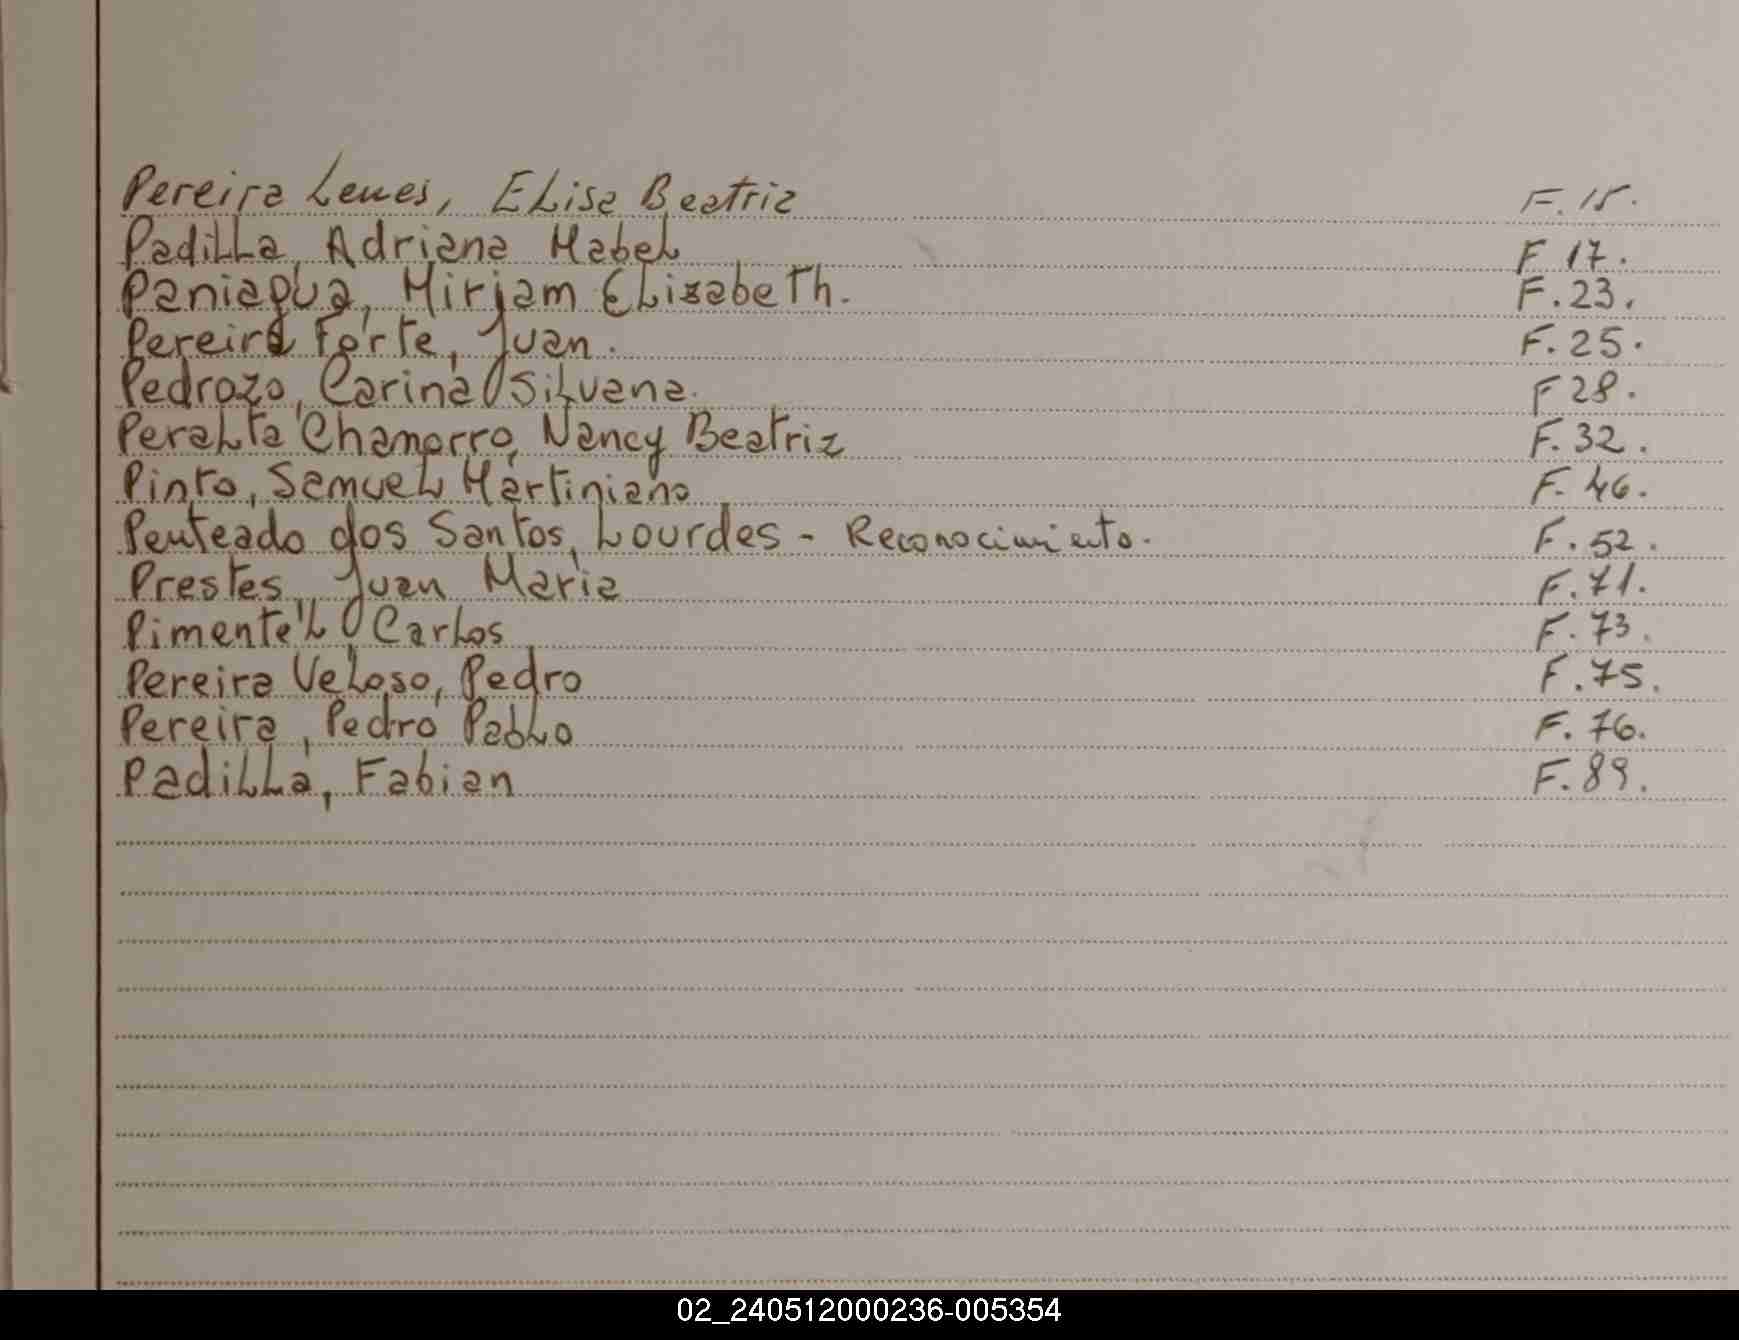 Pereira Lemes, Elisa Beatriz F. 15.
Padilla, Adriana Mabel F 17.
Paniagua, Mirjam Elizabeth. F. 23.
Pereira Forte, Juan. F. 25.
Pedrozo, Carina Silvana. F 28.
Peralta Chamorro, Nancy Beatriz F. 32.
Pinto, Samuel Martiniano F. 46.
Penteado dos Santos, Lourdes - Reconocimiento. F. 52.
Prestes, Juan Maria F. 71.
Pimentel, Carlos F. 73.
Pereira Veloso, Pedro F. 75.
Pereira, Pedro Pablo F. 76.
Padilla, Fabian F. 89.
02_240512000236-005354